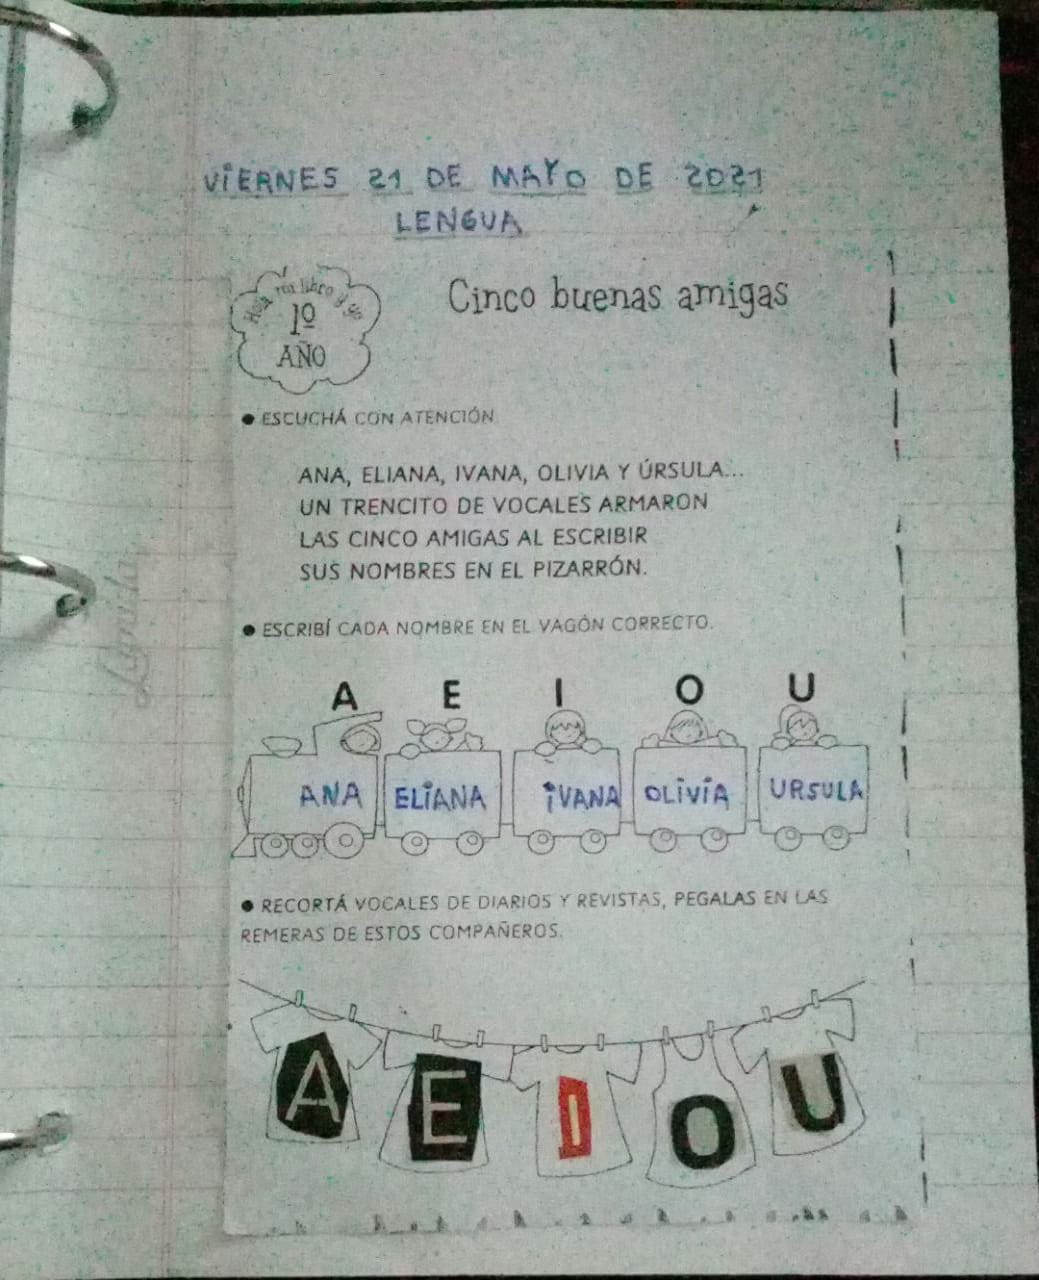 VIERNES 21 DE MAYO DE 2021
LENGUA
Cinco buenas amigas
1º
AÑO
● ESCUCHÁ CON ATENCIÓN
ANA, ELIANA, IVANA, OLIVIA Y ÚRSULA...
UN TRENCITO DE VOCALES ARMARON
LAS CINCO AMIGAS AL ESCRIBIR
SUS NOMBRES EN EL PIZARRÓN.
● ESCRIBÍ CADA NOMBRE EN EL VAGÓN CORRECTO.
A E I O U
ANA ELIANA IVANA OLIVIA URSULA
● RECORTÁ VOCALES DE DIARIOS Y REVISTAS, PEGALAS EN LAS
REMERAS DE ESTOS COMPAÑEROS.
A E I O U